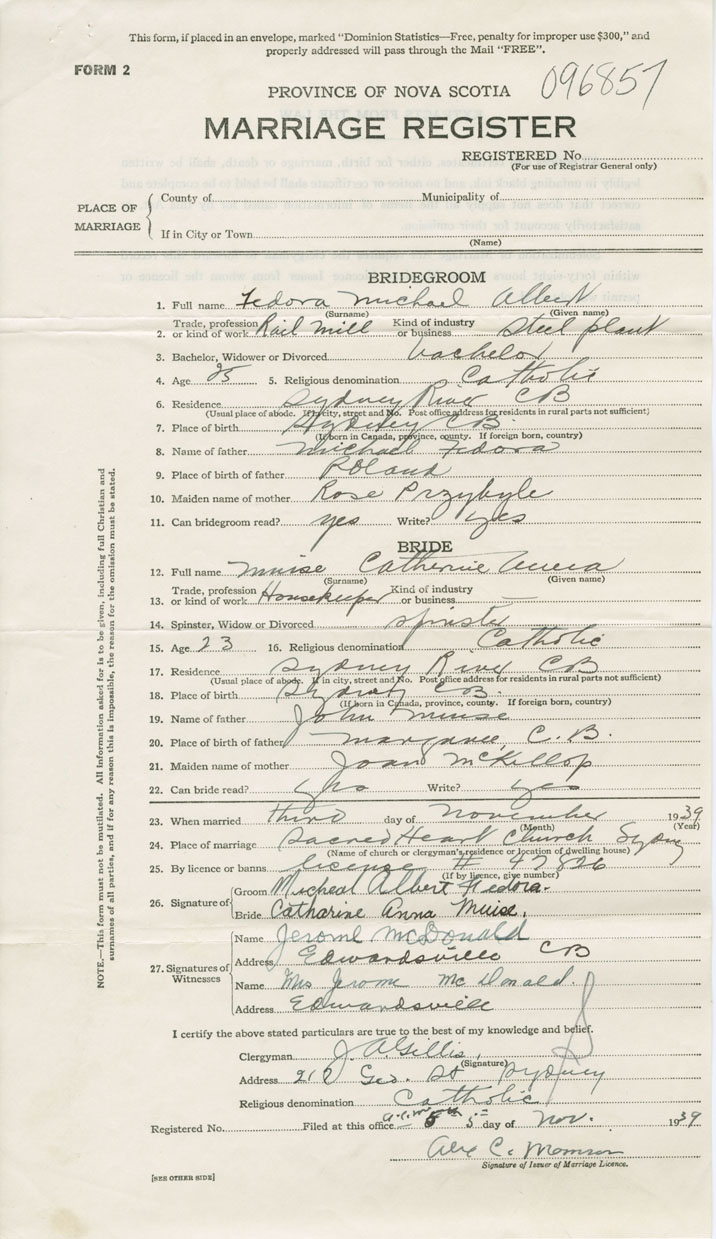 This form, if placed in an envelope, marked "Dominion Statistics—Free, penalty for improper use $300," and
properly addressed will pass through the Mail "FREE".
FORM 2
PROVINCE OF NOVA SCOTIA 096857
MARRIAGE REGISTER
REGISTERED No.
(For use of Registrar General only)
PLACE OF MARRIAGE
County of Municipality of
If in City or Town
(Name)
BRIDEGROOM
1. Full name Fedora Michael Albert
(Surname) (Given name)
2. Trade, profession or kind of work Rail mill Kind of industry or business Steel plant
3. Bachelor, Widower or Divorced bachelor
4. Age 25 5. Religious denomination Catholic
6. Residence Sydney River CB
(Usual place of abode. If in city, street and No. Post office address for residents in rural parts not sufficient)
7. Place of birth Sydney CB.
(If born in Canada, province, county. If foreign born, country)
8. Name of father Michael Fedora
9. Place of birth of father Poland
10. Maiden name of mother Rose Przybyle
11. Can bridegroom read? yes Write? yes
BRIDE
12. Full name Muise Catherine Anna
(Surname) (Given name)
13. Trade, profession or kind of work Housekeeper Kind of industry or business
14. Spinster, Widow or Divorced spinster
15. Age 23 16. Religious denomination Catholic
17. Residence Sydney River CB
(Usual place of abode. If in city, street and No. Post office address for residents in rural parts not sufficient)
18. Place of birth Sydney CB.
(If born in Canada, province, county. If foreign born, country)
19. Name of father John Muise
20. Place of birth of father Margaree, C.B.
21. Maiden name of mother Joan McKillop
22. Can bride read? yes Write? yes
23. When married third day of November 1939
(Month) (Year)
24. Place of marriage Sacred Heart Church Sydney
(Name of church or clergyman's residence or location of dwelling house)
25. By licence or banns license # 47826
(If by licence, give number)
26. Signature of
Groom Micheal Albert Fedora.
Bride Catharine Anna Muise.
27. Signatures of Witnesses
Name Jerome McDonald
Address Edwardsville CB
Name Mrs Jerome McDonald.
Address Edwardsville
I certify the above stated particulars are true to the best of my knowledge and belief.
Clergyman J. A. Gillis.
(Signature)
Address 210 Geo. St Sydney
Religious denomination Catholic
Registered No. Filed at this office 5 day of Nov. 1939
Alex C.
Signature of Issuer of Marriage Licence.
[SEE OTHER SIDE]
NOTE.—This form must not be mutilated. All information asked for is to be given, including full Christian and
surnames of all parties, and if for any reason this is impossible, the reason for the omission must be stated.